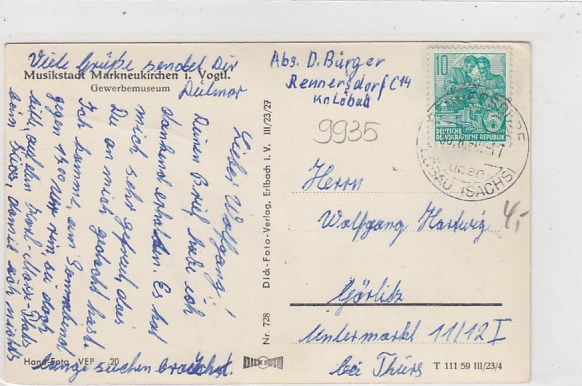 Viele Grüße sendet Dir
Dietmar
Musikstadt Markneukirchen i. Vogtl.
Gewerbemuseum
Lieber Wolfgang!
Deinen Brief habe ich
dankend erhalten. Es hat
mich sehr gefreut, das
Du an mich gedacht hast.
Ich komme, am Sonnabend
gegen 14.00 Uhr
bitte auf den Karl-Marx-Platz
beim Kiosk, damit ich nicht
lange suchen brauche.
Hand-Foto VEP - 20
Nr. 728 Dick-Foto-Verlag, Erlbach i. V. III/23/27
DICK FOTO
Abs. D. Bürger
Rennersdorf C 14
9935
10
DEUTSCHE
DEMOKRATISCHE REPUBLIK
(SACHS)
4,-
Herrn
Wolfgang Hartwig
Görlitz
Untermarkt 11/12 I
bei Thürs
T 111 59 III/23/4